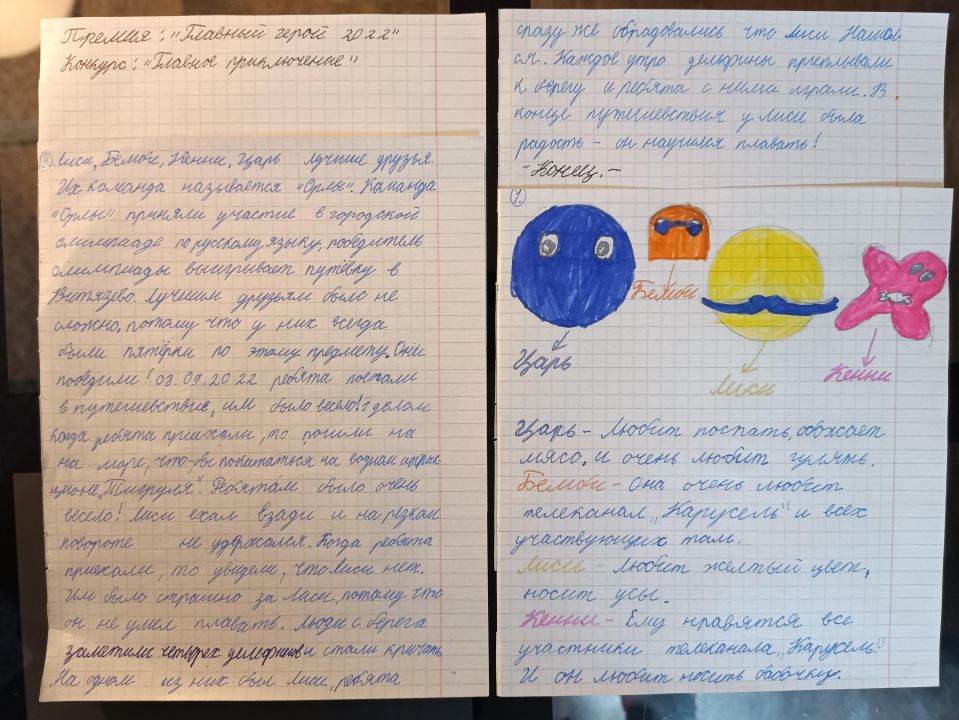 Премия: "Главный герой 2022"
Конкурс: "Главное приключение"
3). Лиси, Бемби, Кенни, Царь лучшие друзья.
Их команда называется "Орлы". Команда
"Орлы" приняли участие в городской
олимпиаде по русскому языку, победитель
олимпиады выигрывает путёвку в
Витязево. Лучшим друзьям было не
сложно, потому что у них всегда
были пятёрки по этому предмету. Они
победили! 03.09.2022 ребята поехали
в путешевствие, им было весело!
когда ребята приехали, то пошли на
на море, что-бы покататься на водном аттрак
ционе, "Тигруля". Ребятам было очень
весело! Лиси ехал взади и на резком
повороте не удержался. Когда ребята
приехали, то увидели, что Лиси нет.
Им было страшно за Лиси, потому что
он не умел плавать. Люди с берега
заметили четырёх дельфинов и стали кричать
На одном из них был Лиси, ребята
3
сразу же обрадовались что Лиси Нашол
ся. Каждое утро дельфины приплывали
к берегу и ребята с ними играли. В
конце путешевствия у Лиси была
радость - он научился плавать!
- Конец. -
1.
Бемби
Царь
Лиси
Кенни
Царь - Любит поспать, обожает
мясо, и очень любит гулять.
Бемби - Она очень любит
телеканал "Карусель" и всех
участвующих там.
Лиси - Любит желтый цвет,
носит усы.
Кенни - Ему нравятся все
участники телеканала, "Карусель!"
И он любит носить бабочку.